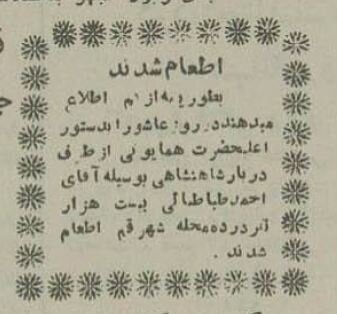 اطعام شدند
بطوریکه از قم اطلاع
میدهند در روز عاشورا بدستور
اعلیحضرت همایونی از طرف
دربار شاهنشاهی بوسیله آقای
احمد طباطبائی بیست هزار
نفر در ده محله شهر قم اطعام
شدند .